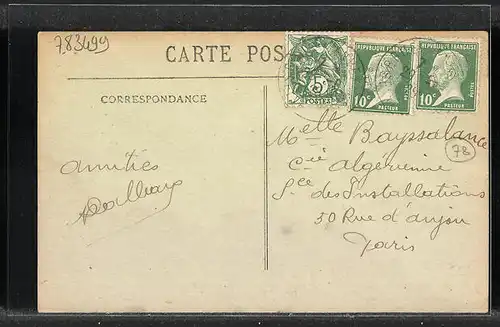 783499
CARTE POS
5c
POSTES
REPUBLIQUE FRANÇAISE
10c
PASTEUR
REPUBLIQUE FRANÇAISE
10c
PASTEUR
CORRESPONDANCE
Melle Bayssalance
78
Cie algerienne
Sce des Installations
50 Rue d'anjou
Paris
amities